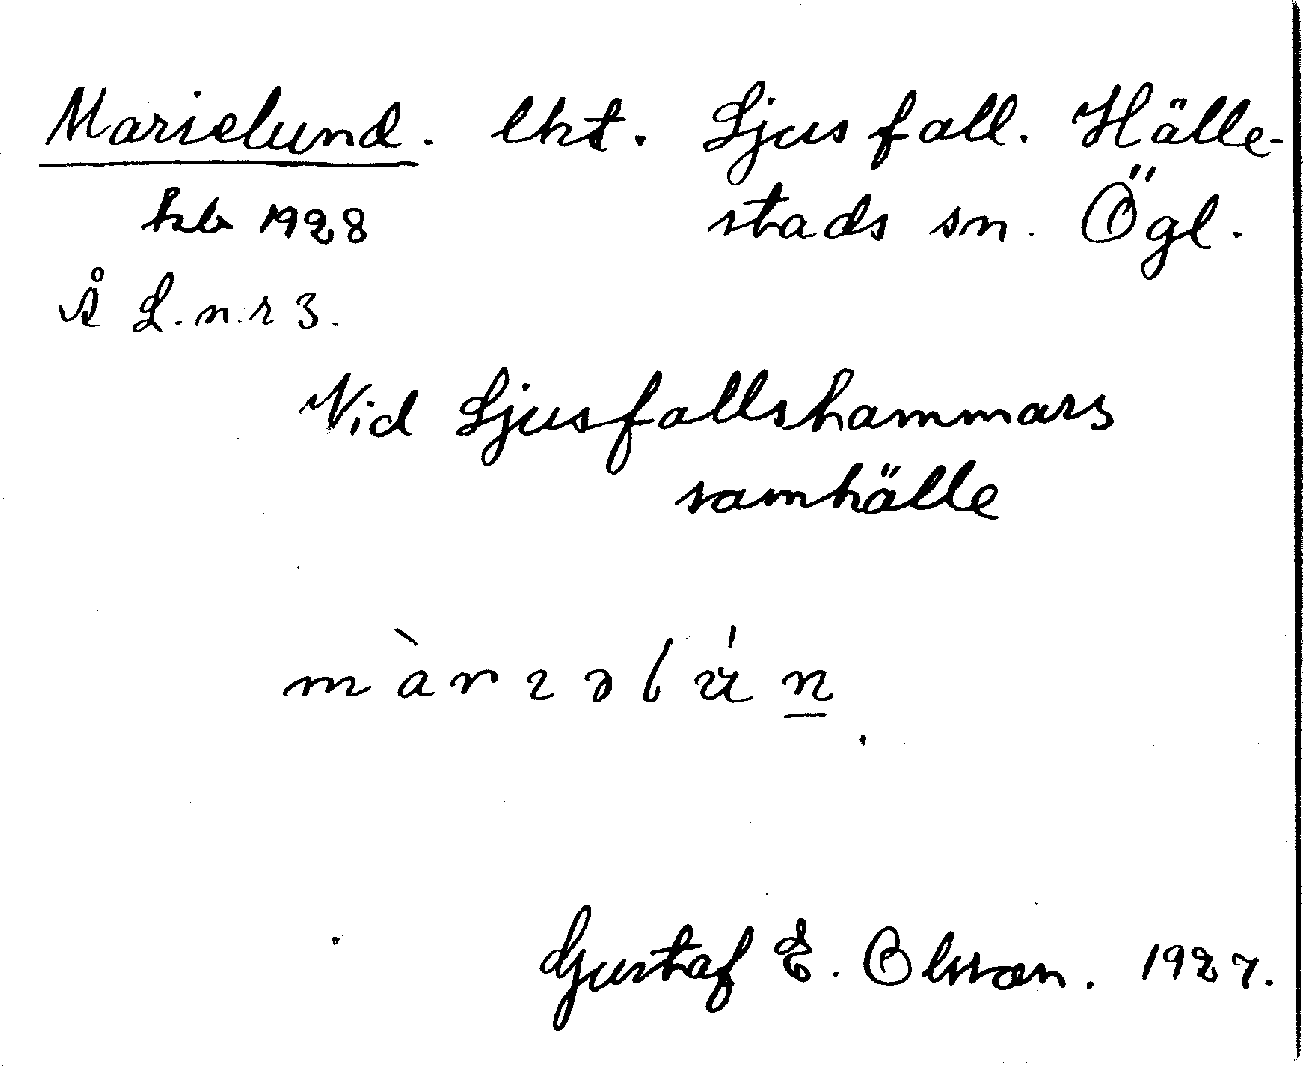 Marielund. lht. Ljusfall. Hälle-
hb 1928 stads sn. Ögl.
Å L.n.r 3.
Vid Ljusfallshammars
samhälle
màrıəlún
Gustaf E. Olsson. 1927.